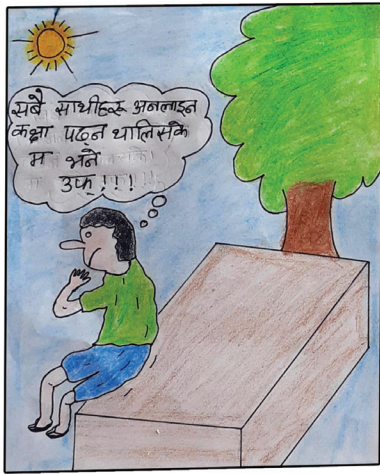 सबै साथीहरू अनलाइन
कक्षा पढ्न थालिसके
म भने
उफ् ! ! !